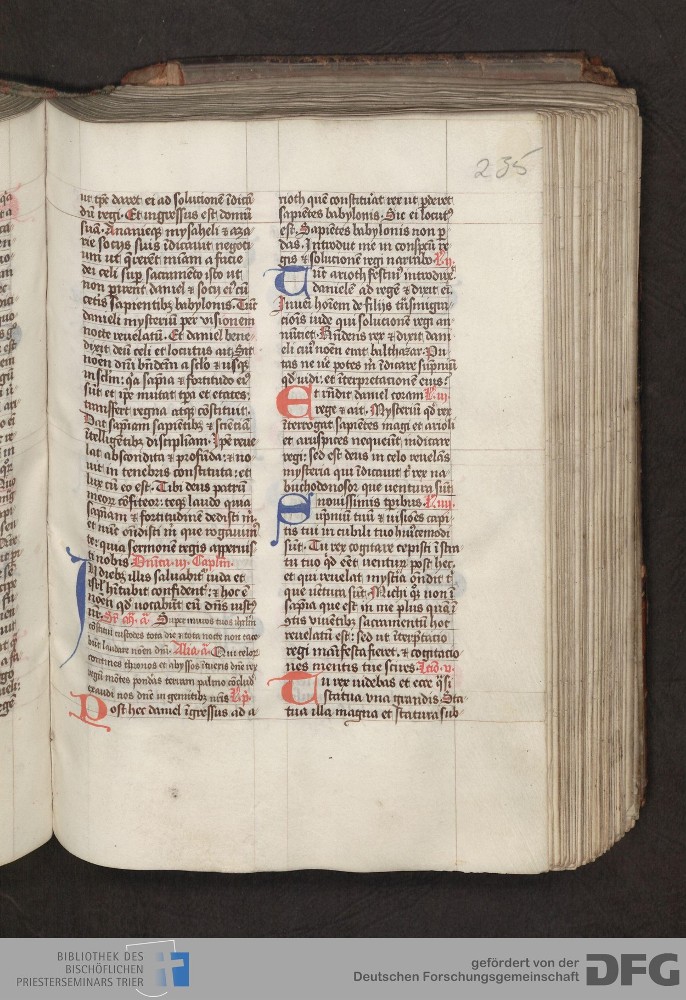 235
ut tp̄s daret ei ad solutionē īdicā
dū regi. Et ingressus est domū
suā. Ananieqȝ mysaheli ⁊ aza
rie socijs suis īdicauit negoti
um ut q̄rerēt miām a facie
dei celi sup̄ sacramēto isto ut
non pirent daniel ⁊ socij eiꝰ cū
cet̄is sapientibȝ babylonis. Tūc
danieli mysteriū per visionem
nocte reuelatū. Et daniel bene
dixit deū celi et locutus ait. Sit
nōen dn̄i bn̄dcm̄ a sclo ⁊ usqȝ
in sclm̄: q̄a sapn̄a ⁊ fortitudo eiꝰ
sūt et ip̄e mutat tp̄a et etates:
transfert regna atqȝ cōstituit.
Dat sapiam sapientibȝ ⁊ sciētiā
ītelligētibȝ disciplinam. Ip̄e reue
lat abscondita ⁊ profūda: ⁊ no
uit in tenebris constituta: et
lux cū eo est. Tibi deus patrū
meoꝝ cōfiteor: teqȝ laudo quia
sapn̄am ⁊ fortitudinē dedisti m̄
et nūc on̄disti m̄ que rogauimꝰ
te: quia sermonē regis aperuis
ti nobis Dn̄ica .iij. Capl̄m.
In diebȝ illis saluabit᷑ iuda et
isrl̄ hītabit confident᷑: ⁊ hoc ē
nōen qd̄ vocabūt eū dn̄s iustꝰ
nr̄. Sup̄ mḡ. ā. Super muros tuos ihrlm̄
cōstitui custodes tota die ⁊ tota nocte non tace
būt laudare nōen dn̄i. Alia. ā. Qui celoꝝ
contines thronos et abyssos ītueris dn̄e rex
regū mōtes pondas terram palmo cōcludis
exaudi nos dn̄e in gemitibȝ nr̄is L. p̄.
Post hec daniel īgressus ad a
rioth quē constituāt rex ut p̄deret
sapiētes babylonis. Sic ei locutꝰ
est. Sapiētes babylonis non p̄
das. Introduc me in conspc̄u re
gis ⁊ solutionē regi narrabo. L. ij.
Tūc arioth festinꝰ introduxit
danielē ad regē ⁊ dixit ei.
Inueni hoīem de filijs trāsmigra
cioīs iude qui solutionē regi an
nūciet. Rn̄dens rex ⁊ dixit dani
eli cuiꝰ nōen erat balthazar. Pu
tas ne ve᷑ potes m̄ īdicare sūpniū
qd̄ vidi: et īterpretationē eius?
Et rn̄dit daniel coram L. iij.
rege ⁊ ait. Mysteriū qd̄ rex
īterrogat sapiētes magi et arioli
et auspices nequeūt indicare
regi: sed est deus in celo reuelās
mysteria qui īdicauit t᷑ rex na
buchodonosor que ventura sūt
novissimis tp̄ribus. L. iiij.
Sūpniū tuū ⁊ visiōes capi
tis tui in cubili tuo huiꝰcemodi
sūt. Tu rex cogitare cepisti ī stra
tu tuo qd̄ eēt ventuꝝ post hec.
et qui reuelat myst̄ia on̄dit t᷑
que vētura sūt. Michi qꝫ non ī
sapn̄a que est in me plus quā ī
cūctis viuētibȝ sacramentū hoc
reuelatū est: sed ut īterp̄tacio
regi māifesta fieret. ⁊ cogitacio
nes mentis tue scires. Lcō. v.
Tu rex videbas et ecce q̄si
statua vna grandis. Sta
tua illa magna et statura sub
BIBLIOTHEK DES
BISCHÖFLICHEN
PRIESTERSEMINARS TRIER
gefördert von der
Deutschen Forschungsgemeinschaft
DFG